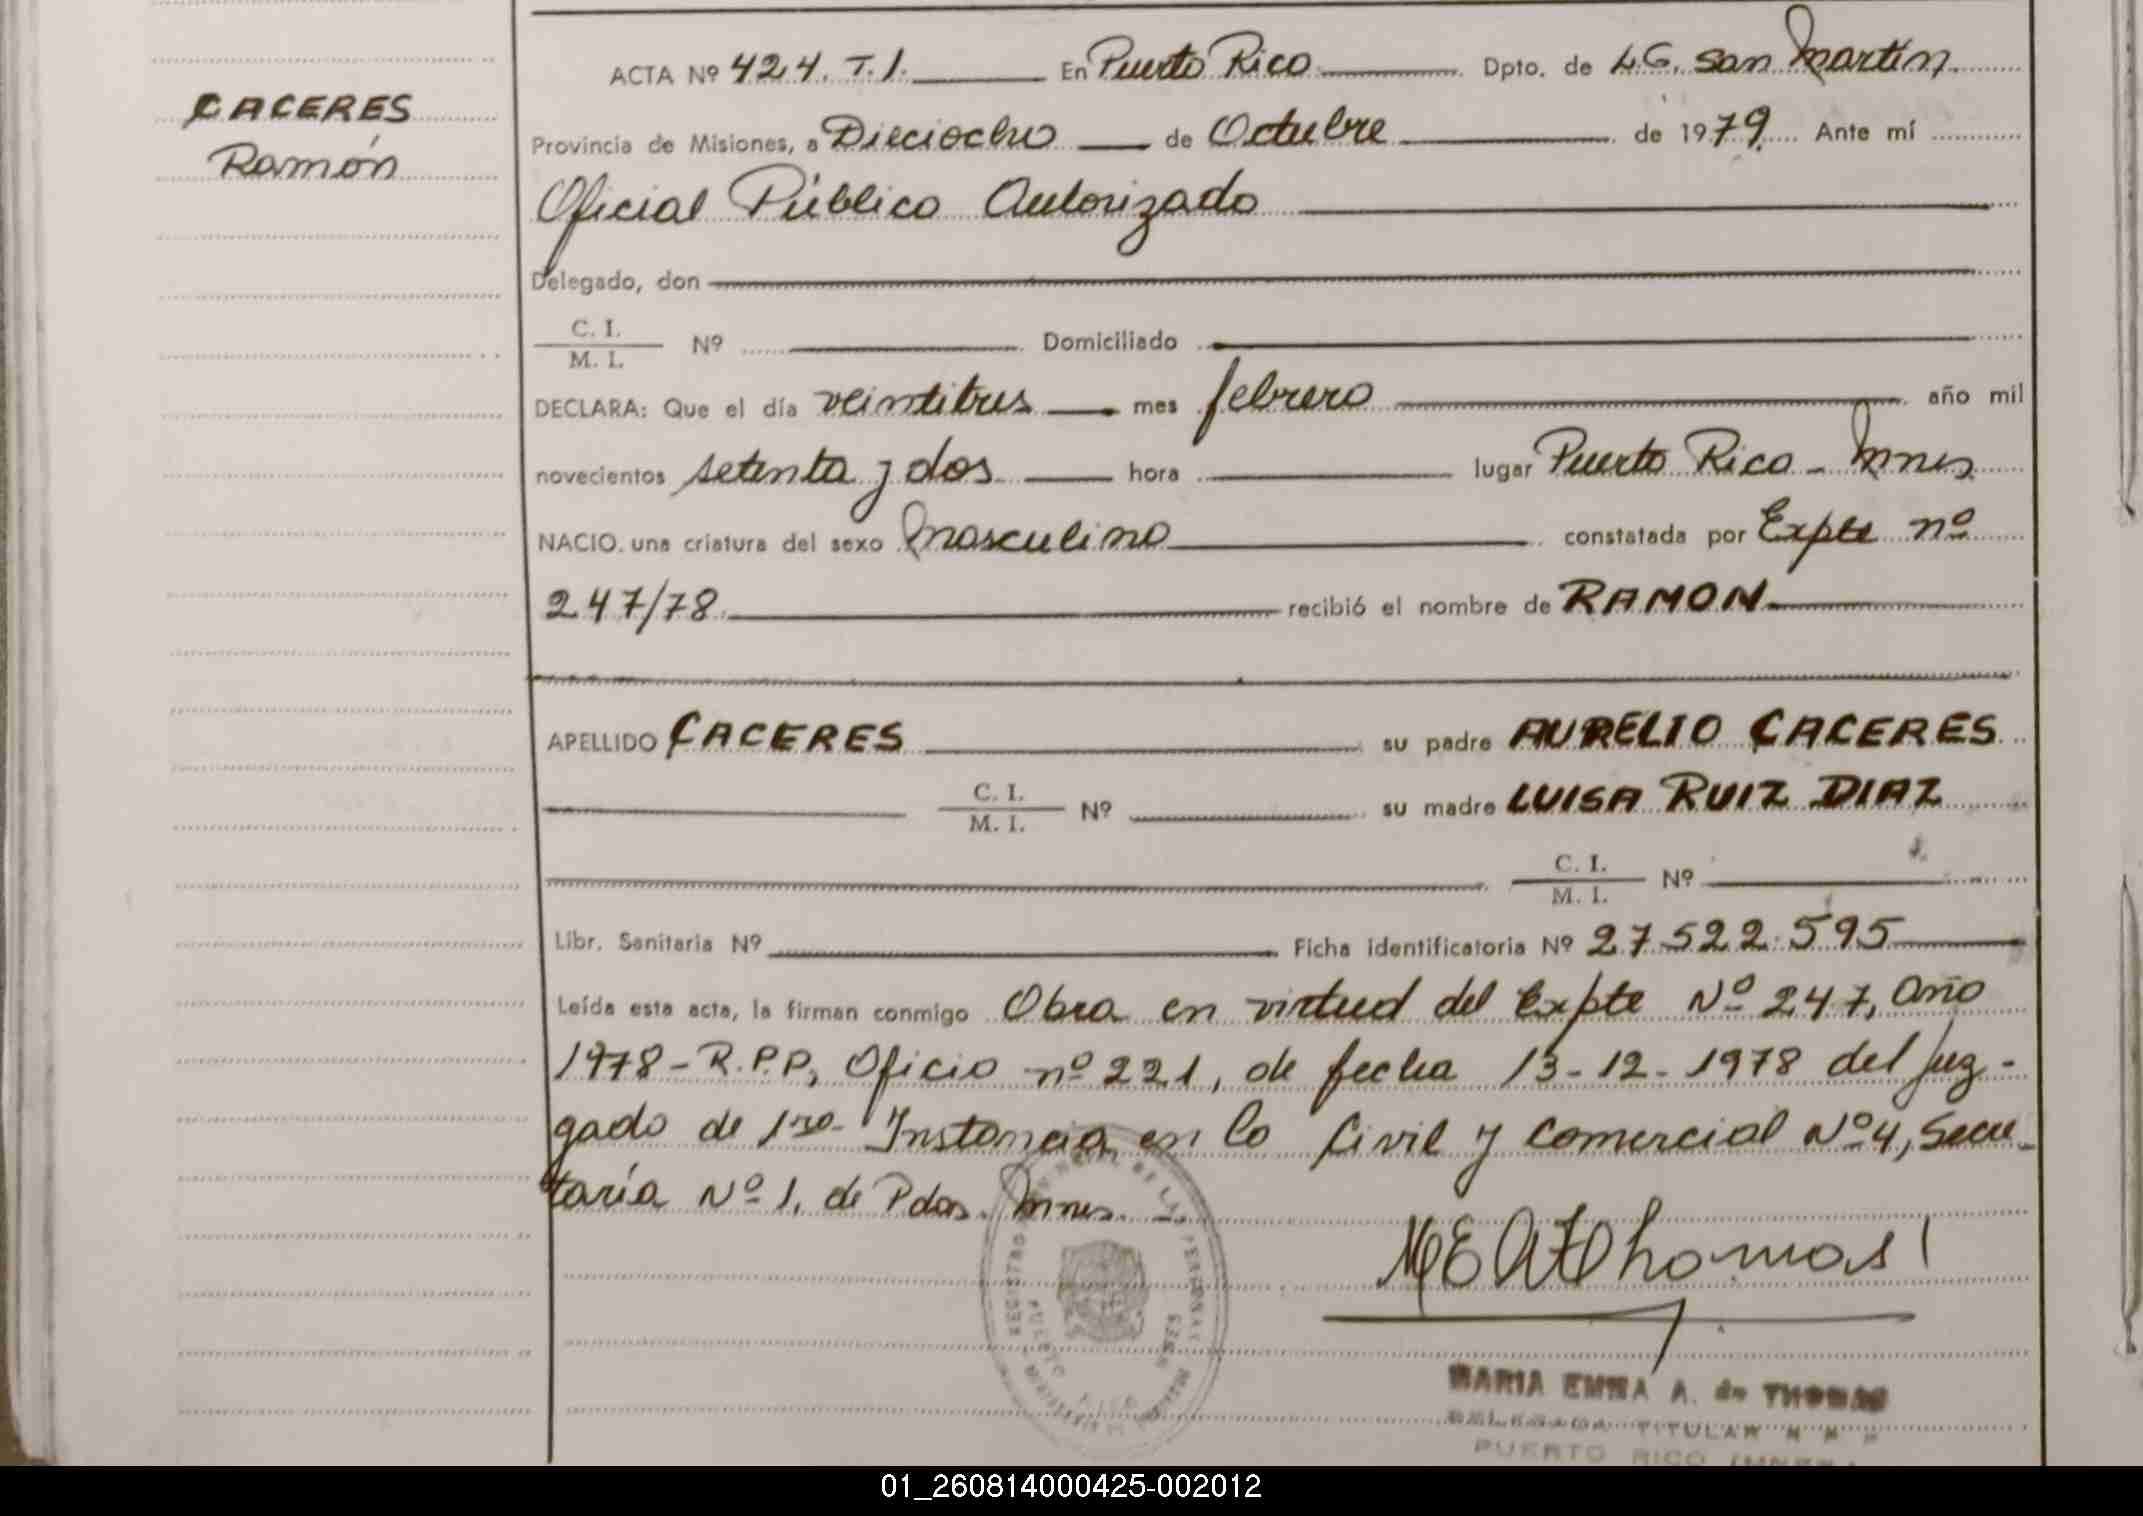 CACERES
Ramón
ACTA Nº 424. T.1. En Puerto Rico Dpto. de L.G. San Martín
Provincia de Misiones, a Dieciocho de Octubre de 1979. Ante mí
Oficial Público Autorizado
Delegado, don
C. I.
M. I.
Nº Domiciliado
DECLARA: Que el día veintitres mes febrero año mil
novecientos setenta y dos hora lugar Puerto Rico - Mnes
NACIO. una criatura del sexo Masculino constatada por Expte nº
247/78. recibió el nombre de RAMON
APELLIDO CACERES su padre AURELIO CACERES
C. I.
M. I.
Nº su madre LUISA RUIZ DIAZ
C. I.
M. I.
Nº
Libr. Sanitaria Nº Ficha identificatoria Nº 27.522.595
Leída esta acta, la firman conmigo Obra en virtud del Expte Nº 247, Año
1978 - R.P.P, Oficio nº 221, de fecha 13-12-1978 del Juz-
gado de 1ra. Instancia en lo Civil y Comercial Nº 4, Secre-
taría Nº 1, de Pdas. Mnes. -
REGISTRO PROVINCIAL DE LAS PERSONAS
PUERTO RICO
MISIONES
M E A d Thomas
MARIA EMMA A. de THOMAS
DELEGADA TITULAR
PUERTO RICO (MNES.)
01_260814000425-002012